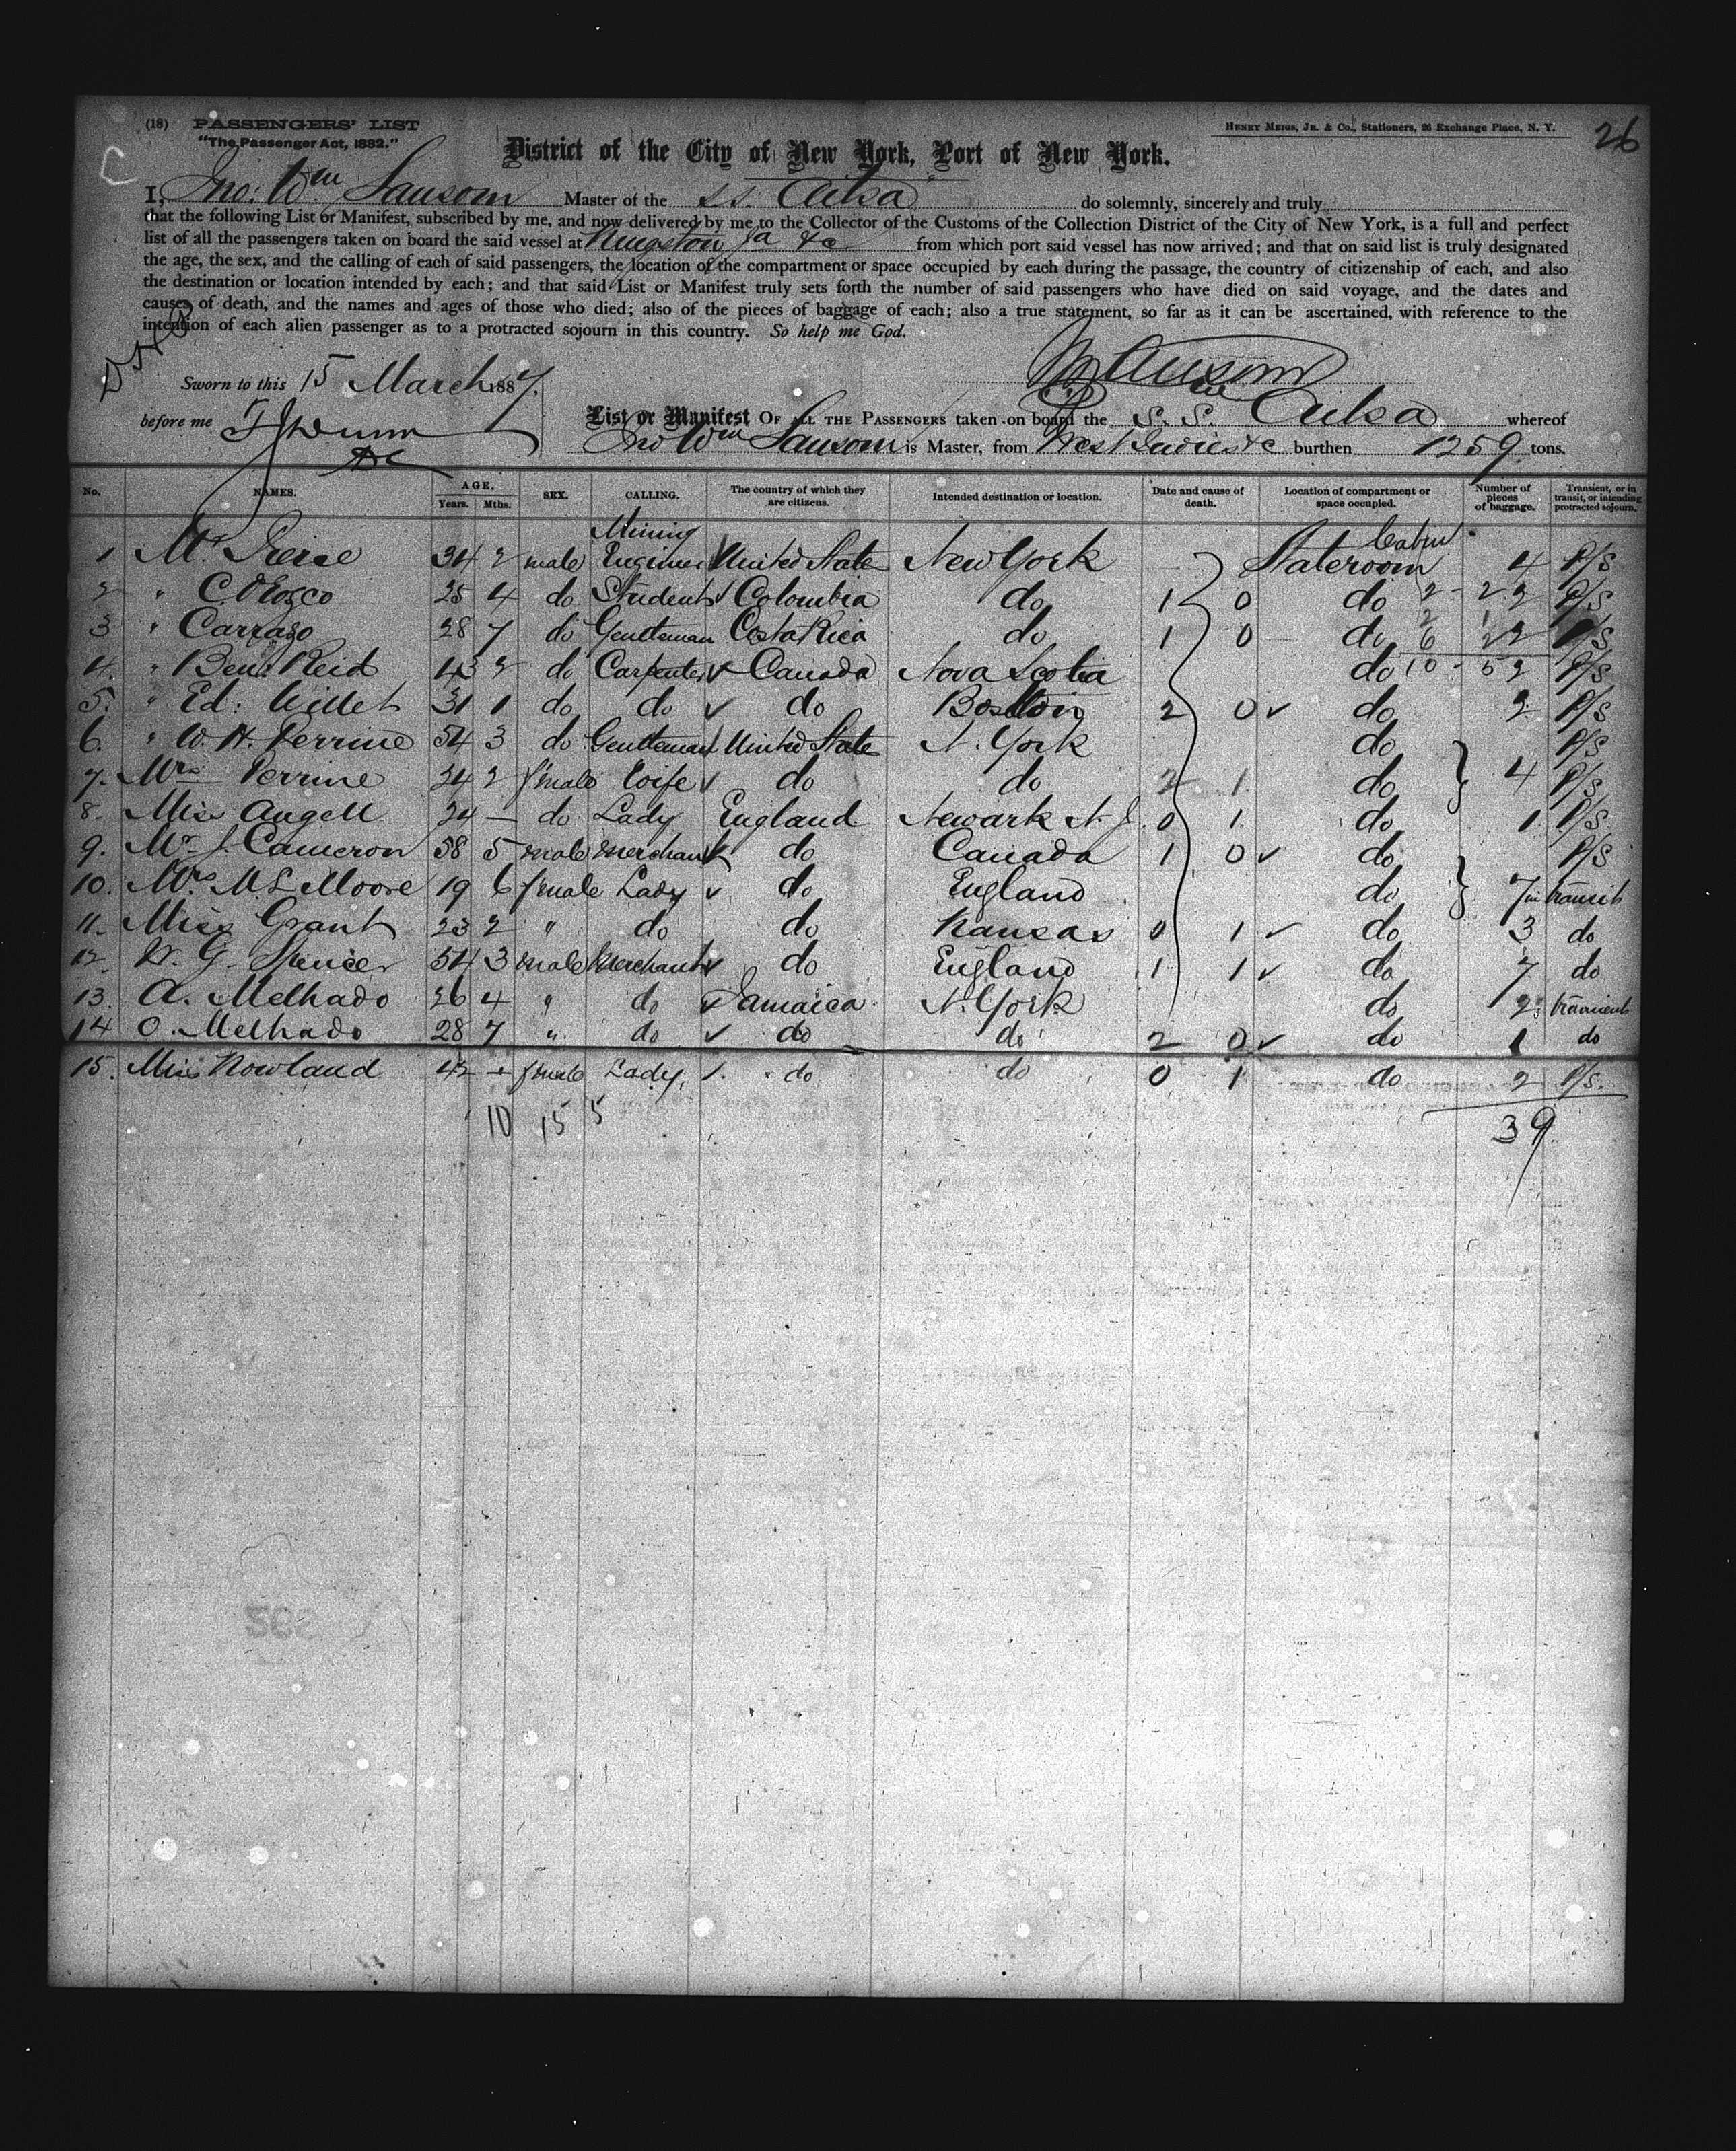 (18) PASSENGERS' LIST
"The Passenger Act, 1882."
HENRY MEIGS, JR. & CO., Stationers, 26 Exchange Place, N. Y.
26
District of the City of New York, Port of New York.
I, Jno: Wm Sansom Master of the s.s. do solemnly, sincerely and truly
that the following List or Manifest, subscribed by me, and now delivered by me to the Collector of the Customs of the Collection District of the City of New York, is a full and perfect
list of all the passengers taken on board the said vessel at Kingston Ja &c from which port said vessel has now arrived; and that on said list is truly designated
the age, the sex, and the calling of each of said passengers, the location of the compartment or space occupied by each during the passage, the country of citizenship of each, and also
the destination or location intended by each; and that said List or Manifest truly sets forth the number of said passengers who have died on said voyage, and the dates and
causes of death, and the names and ages of those who died; also of the pieces of baggage of each; also a true statement, so far as it can be ascertained, with reference to the
intention of each alien passenger as to a protracted sojourn in this country. So help me God.
Sworn to this 15 March 1887.
before me
List or Manifest OF ALL THE PASSENGERS taken on board the S. S. whereof
Jno Wm Sansom is Master, from West Indies &c burthen 1259 tons.
No. NAMES. AGE. Years. Mths. SEX. CALLING. The country of which they are citizens. Intended destination or location. Date and cause of death. Location of compartment or space occupied. Number of pieces of baggage. Transient, or in transit, or intending protracted sojourn.
1 Mr 34 2 male Mining Engineer United State New York Cabin Stateroom 4 P/S
2 " 25 4 do Student ✓ Colombia do 1 0 do 2 - 2 2 P/S
3 " Carrazo 28 7 do Gentleman Costa Rica do 1 0 do P/S
4. " Ben: Reid 43 2 do Carpenter ✓ Canada Nova Scotia do 10 - 5 2 P/S
5. " Ed: Willet 31 1 do do ✓ do Boston 2 0 ✓ do 2 P/S
6. " W. H. Perrine 54 3 do Gentleman United State N. York do P/S
7. Mrs Perrine 34 2 female Wife ✓ do do 2 1 do } 4 P/S
8. Miss Angell 24 — do Lady England Newark N. J. 0 1 do 1 P/S
9. Mr J. Cameron 58 5 male Merchant ✓ do Canada 1 0 ✓ do P/S
10. Mrs M. L Moore 19 6 female Lady ✓ do England do } 7 in transit
11. Miss Grant 23 2 " do do Kansas 0 1 ✓ do 3 do
12. G. Spencer 54 3 male Merchant ✓ do England 1 1 ✓ do 7 do
13. A. Melhado 26 4 " do ✓ Jamaica N. York do 2 transient
14 O. Melhado 28 7 " do ✓ do do 2 0 ✓ do 1 do
15. Miss Nowland 42 — female Lady do do 0 1 do 2 P/S.
10 15 5
39